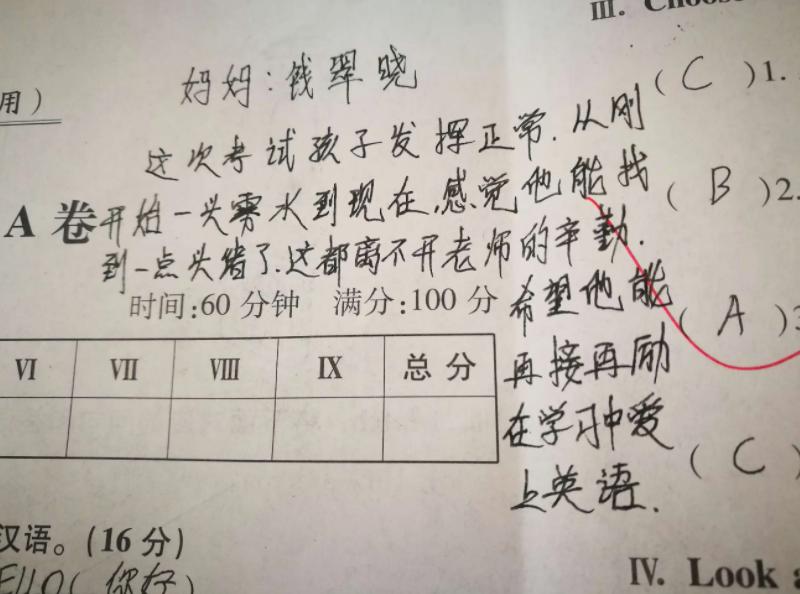 III. Choose
妈妈：钱翠晓
(C)1.
用）
这次考试孩子发挥正常.从刚
A 卷
开始一头雾水到现在,感觉他能找
(B)2.
到一点头绪了.这都离不开老师的辛勤.
时间:60 分钟 满分:100 分
希望他能
(A)3
VI VII VIII IX 总 分
再接再励
在学习中爱
(C)
上英语.
汉语。(16 分)
EllO(你好)
IV. Look a